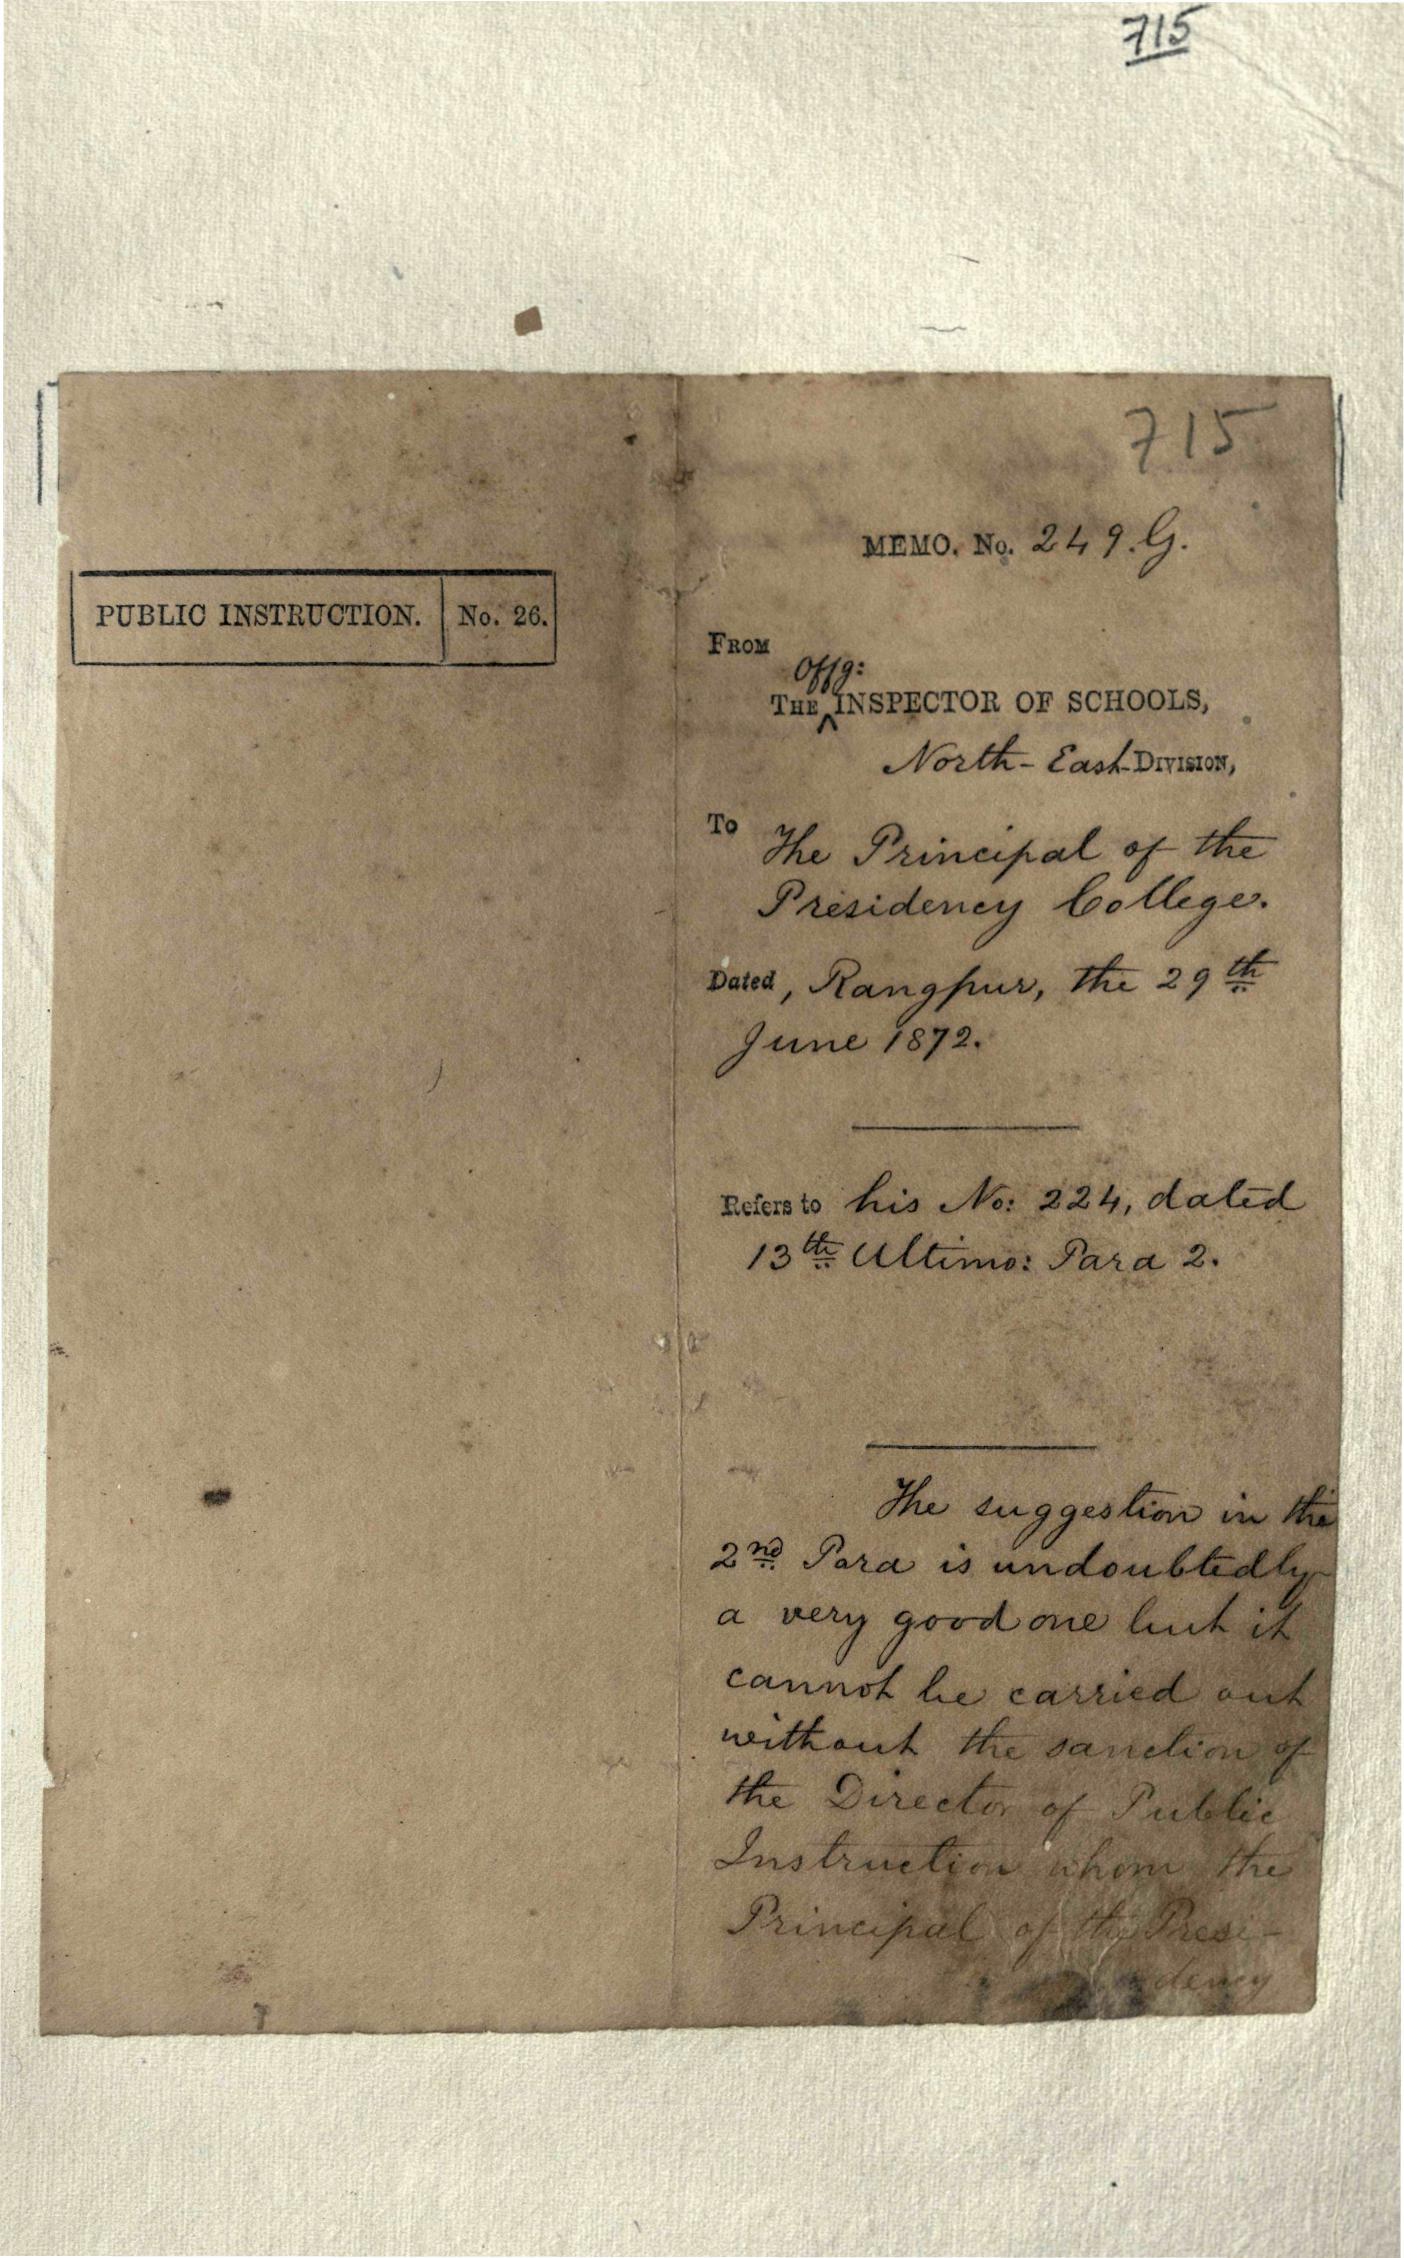 715
715
PUBLIC INSTRUCTION. No. 26.
MEMO. No. 249. G.
FROM
Offg:
THE ^ INSPECTOR OF SCHOOLS,
North-East DIVISION,
To
The Principal of the
Presidency College.
Dated, Rangpur, the 29th
June 1872.
Refers to his No: 224, dated
13th Ultimo: Para 2.
The suggestion in the
2nd Para is undoubtedly
a very good one but it
cannot be carried out
without the sanction of
the Director of Public
Instruction whom the
Principal of the Presi-
dency